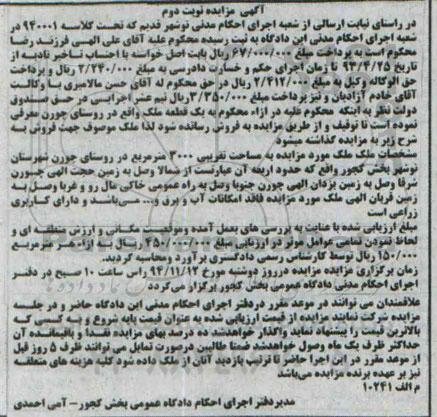 آگهی مزایده نوبت دوم
در راستای نیابت ارسالی از شعبه اجرای احکام مدنی نوشهر قدیم که تحت کلاسه ۹۴۰۰۰۱ در
شعبه اجرای احکام مدنی این دادگاه به ثبت رسیده محکوم علیه آقای علی الهی فرزند رضا
محکوم است به پرداخت مبلغ ۶۷/۰۰۰/۰۰۰ ریال بابت اصل خواسته با احتساب تاخیر تادیه از
تاریخ ۹۳/۴/۲۵ تا زمان اجرای حکم و خسارت دادرسی به مبلغ ۲/۲۴۰/۰۰۰ ریال و پرداخت
حق الوکاله وکیل به مبلغ ۲/۴۱۲/۰۰۰ ریال در حق محکوم له آقای حسن مالامیری با وکالت
آقای خادم آزادیان و نیز پرداخت مبلغ ۳/۳۵۰/۰۰۰ ریال نیم عشر اجرایی در حق صندوق
دولت نظر به اینکه محکوم علیه در ازاء محکوم به یک قطعه ملک واقع در روستای چورن معرفی
نموده است تا توقیف و از طریق مزایده به فروش رسانده شود لذا ملک موصوف جهت فروش به
شرح زیر به مزایده گذاشته میشود
مشخصات ملک ملک مورد مزایده به مساحت تقریبی ۳۰۰۰ مترمربع در روستای چورن شهرستان
نوشهر بخش کجور واقع که حدود اربعه آن عبارتست از شمالا وصل به زمین حجت الهی چورن
شرقا وصل به زمین یزدان الهی چورن جنوبا وصل به راه عمومی خاکی مال رو و غربا وصل به
زمین قربان الهی ملک مورد مزایده فاقد امکانات آب و برق و... می‌باشد و دارای کاربری
زراعی است
مبلغ ارزیابی شده با عنایت به بررسی های بعمل آمده وموقعیت مکانی و ارزش منطقه ای و
لحاظ نمودن تمامی عوامل موثر در ارزیابی مبلغ ۴۵۰/۰۰۰/۰۰۰ ریال به ازاء هر مترمربع
۱۵۰/۰۰۰ ریال توسط کارشناس رسمی دادگستری برآورد ومحاسبه گردید.
زمان برگزاری مزایده مزایده درروز دوشنبه مورخ ۹۴/۱۱/۱۲ راس ساعت ۱۰ صبح در دفتر
اجرای احکام مدنی دادگاه عمومی بخش کجور برگزار می‌گردد
علاقمندان می توانند در موعد مقرر دردفتر اجرای احکام مدنی این دادگاه حاضر و در جلسه
مزایده شرکت نمایند مزایده از قیمت ارزیابی شده به عنوان قیمت پایه شروع و به کسی که
بالاترین قیمت را پیشنهاد نماید واگذار خواهدشد ده درصد بهای مزایده نقدا و باقیمانده آن
حداکثر ظرف یک ماه وصول خواهدشد ضمنا طالبین درصورت تمایل می توانند ظرف ۵ روز قبل
از موعد مقرر در این اجرا حاضر تا ترتیب بازدید آنان از ملک داده شود کلیه هزینه های متعلقه
نیز بر عهده برنده مزایده می‌باشد
م الف ۱۰۲۴۱
مدیردفتر اجرای احکام دادگاه عمومی بخش کجور- آمی احمدی